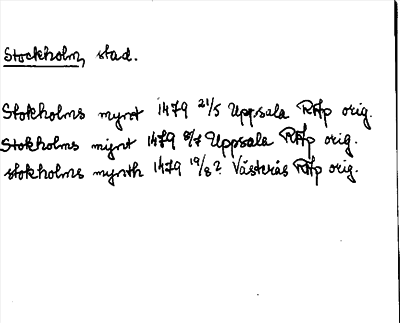 Stockholm, stad.
Stokholms mynt 1479 21/5 Uppsala RAp orig.
Stokholms mynt 1479 8/7 Uppsala RAp orig.
stokholms mynth 1479 19/8? Västerås RAp orig.